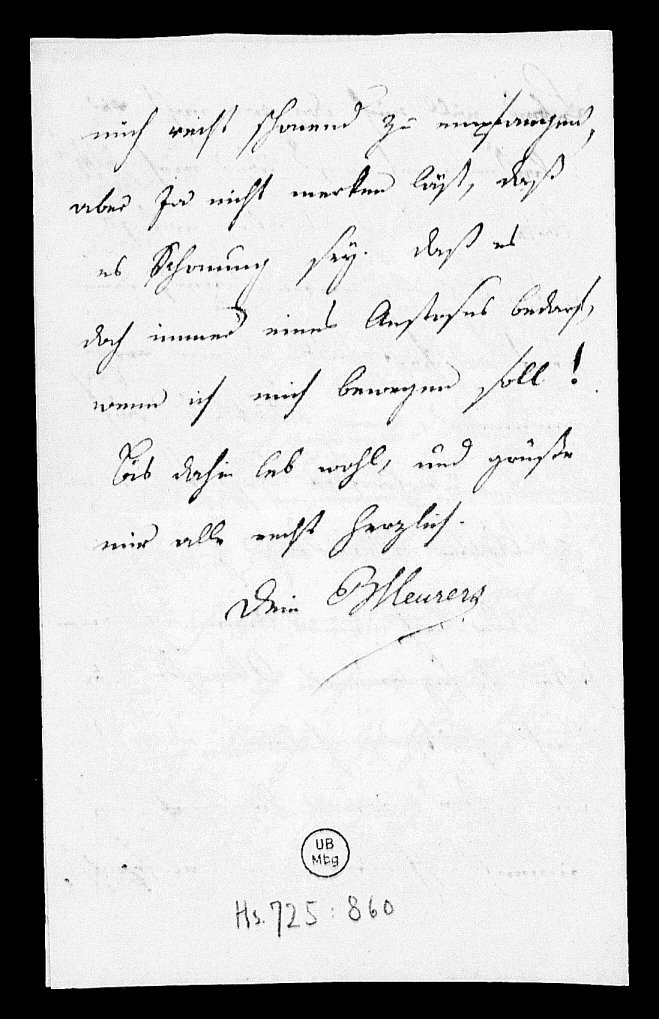 mich recht schonend zu empfangen,
aber Ja nicht merken läst, daß
es Schonung sey. daß es
doch immer eines Anstoses bedarf,
wenn ich mich bewegen soll!
Bis dahin leb wohl, und grüße
mir alle recht herzlich.
Dein Meurer
UB
Mbg
Hs. 725: 860